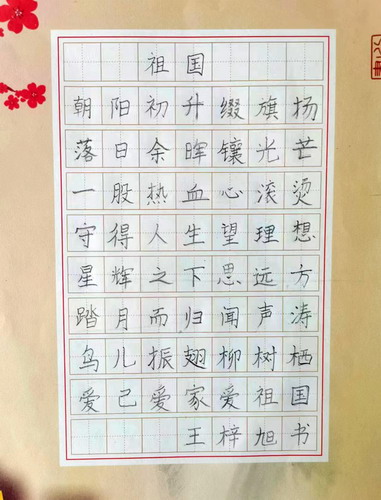 祖国
朝阳初升缀旗扬
落日余晖镶光芒
一股热血心滚烫
守得人生望理想
星辉之下思远方
踏月而归闻声涛
鸟儿振翅柳树栖
爱己爱家爱祖国
王梓旭书